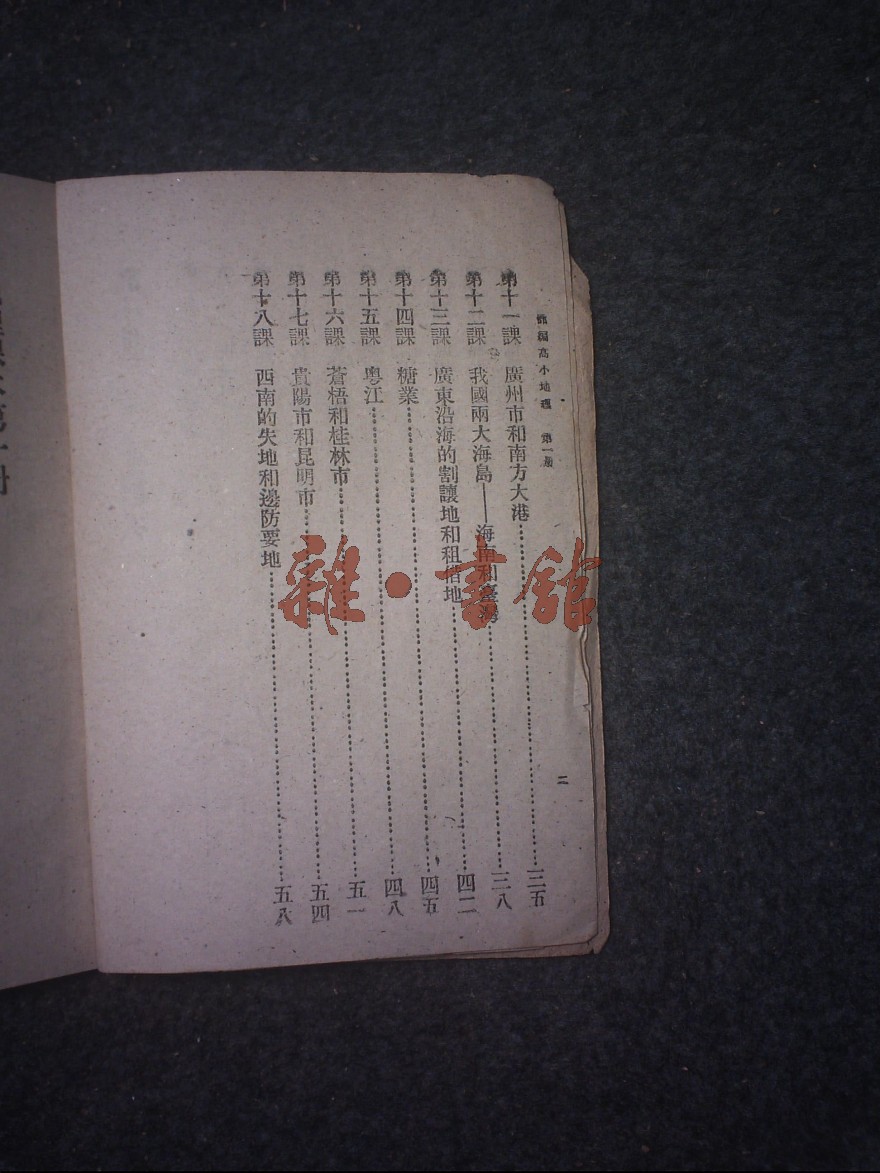 編高小地理 第一册
二
第十一課 廣州市和南方大港……三五
第十二課 我國兩大海島——海南和臺灣……三八
第十三課 廣東沿海的割讓地和租借地……四二
第十四課 糖業……四五
第十五課 粵江……四八
第十六課 蒼梧和桂林市……五一
第十七課 貴陽市和昆明市……五四
第十八課 西南的失地和邊防要地……五八
雜·書館